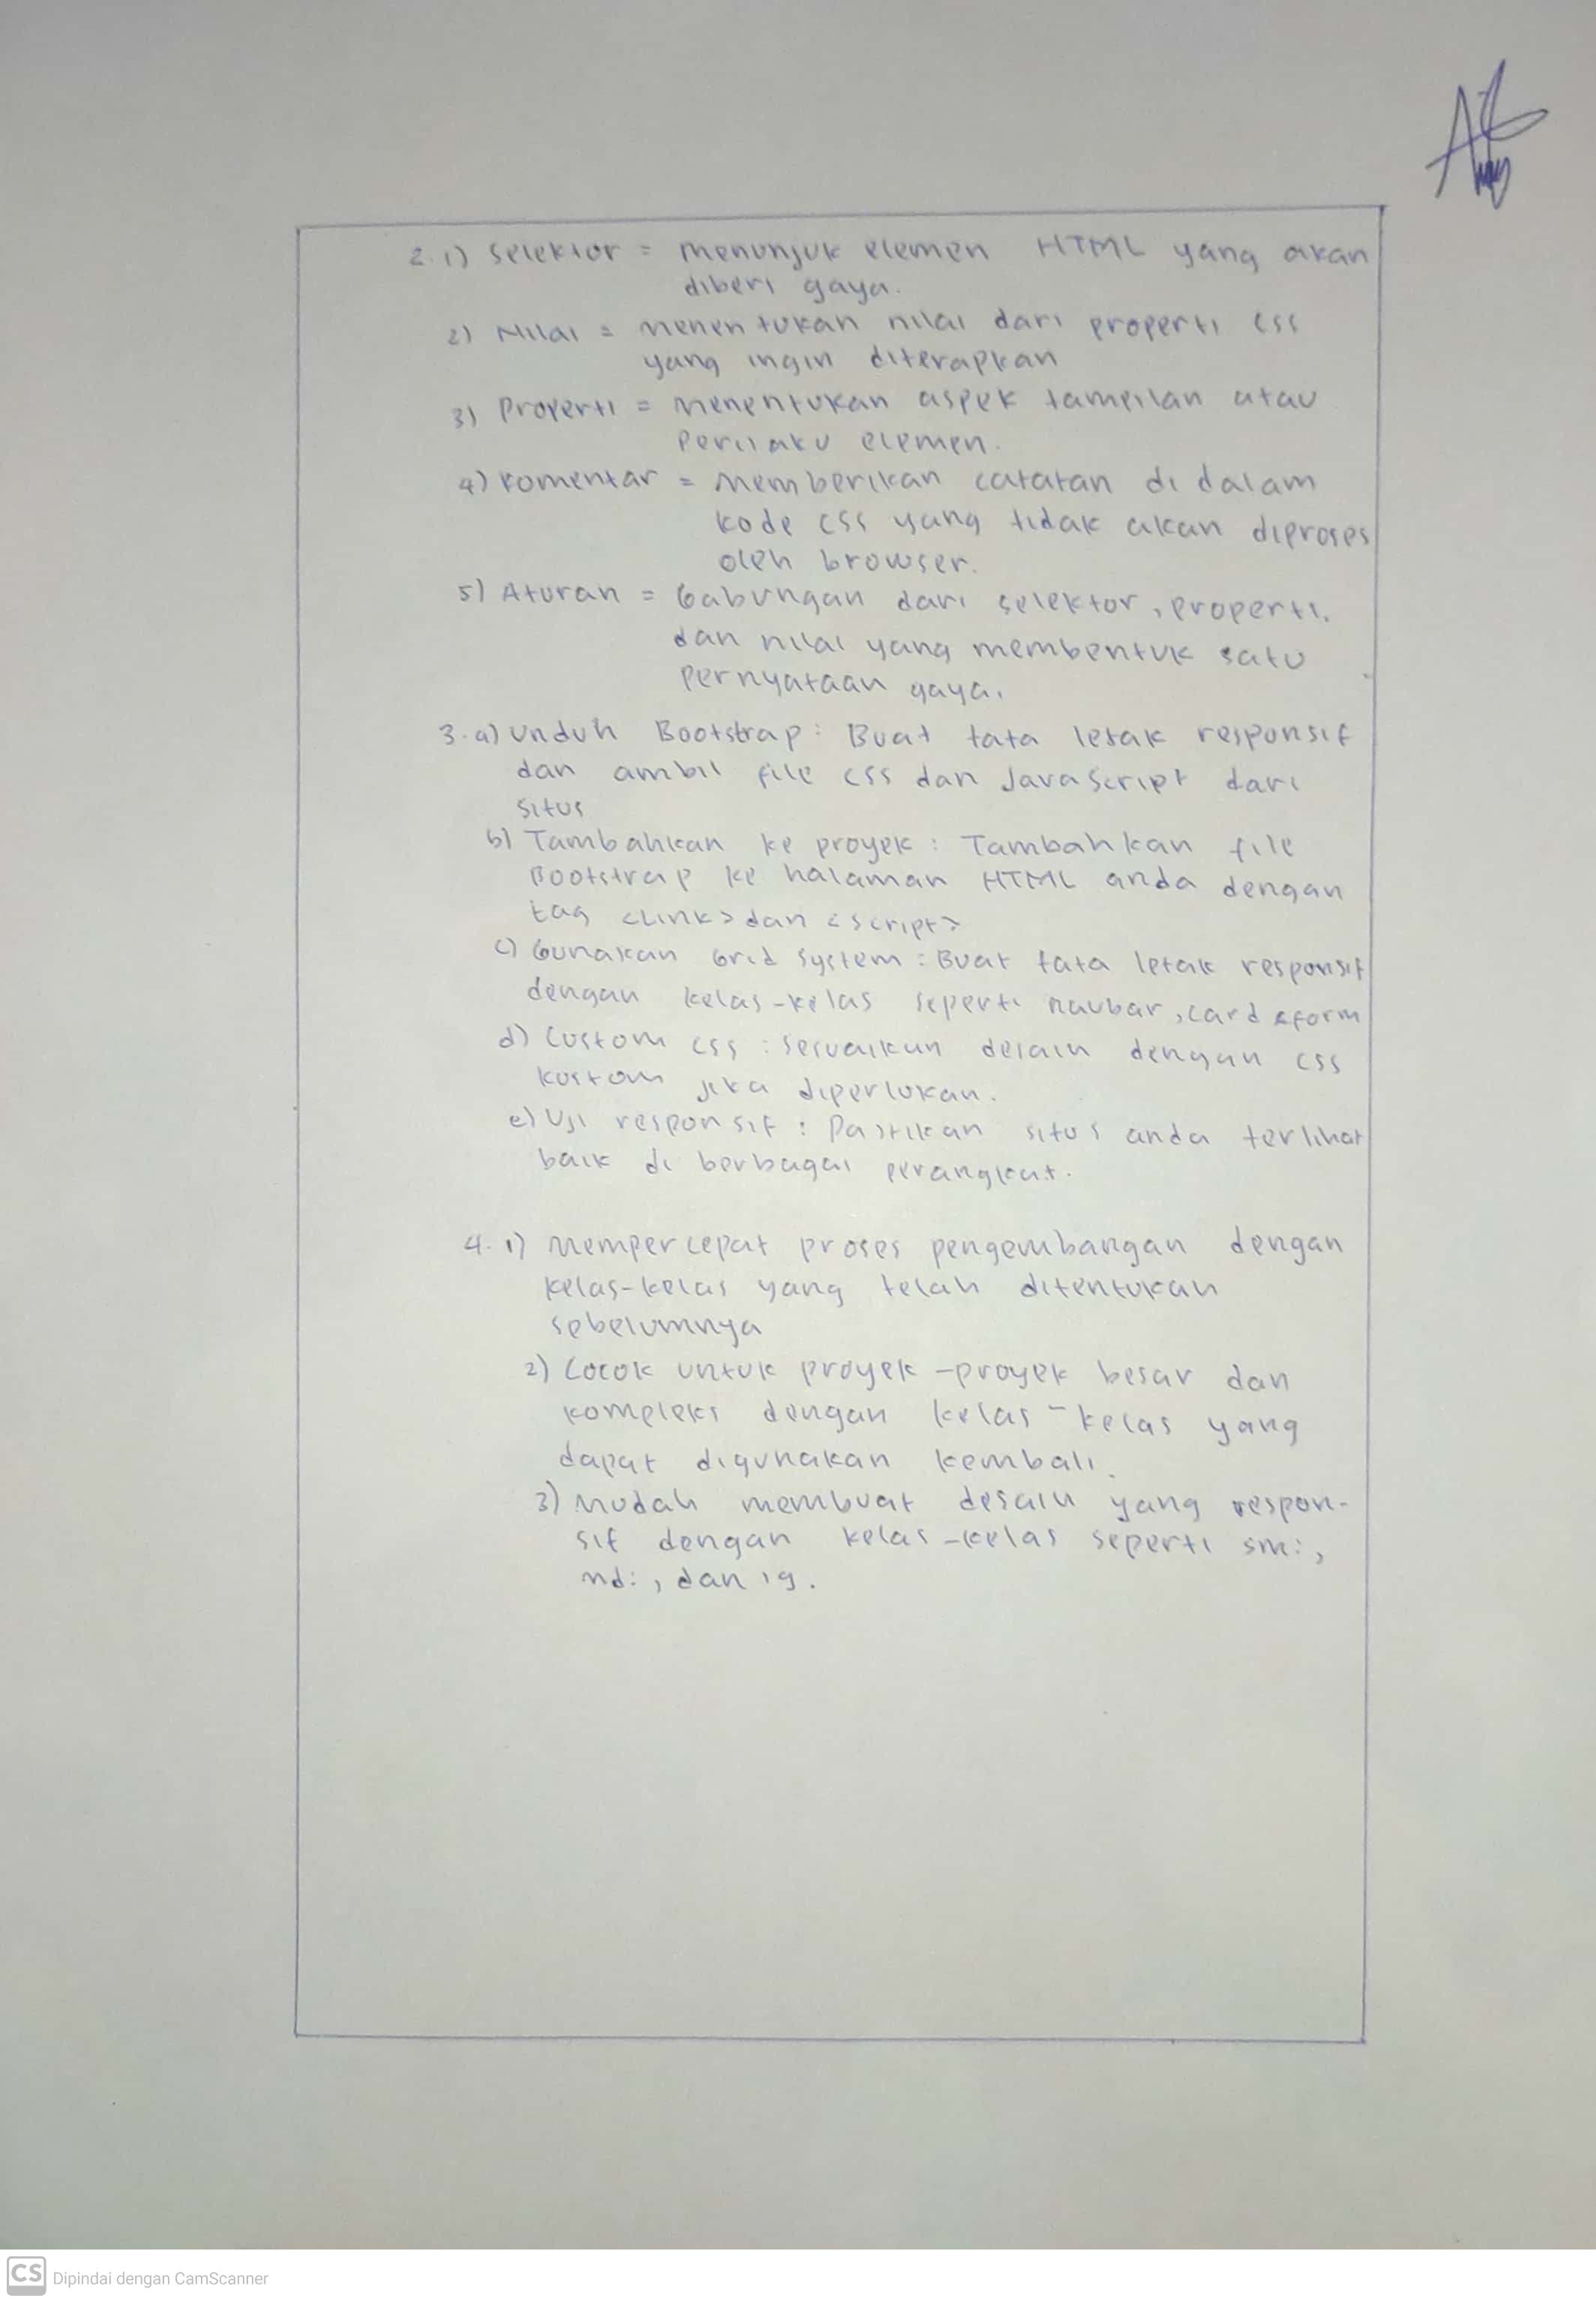 2. 1) Selektor = Menunjuk elemen HTML yang akan
diberi gaya.
2) Nilai = Menentukan nilai dari properti CSS
yang ingin diterapkan
3) Properti = Menentukan aspek tampilan atau
Perilaku elemen.
4) Komentar = Memberikan catatan di dalam
kode CSS yang tidak akan diproses
oleh browser.
5) Aturan = Gabungan dari selektor, properti,
dan nilai yang membentuk satu
pernyataan gaya.
3. a) Unduh Bootstrap : Buat tata letak responsif
dan ambil file CSS dan JavaScript dari
situs
b) Tambahkan ke proyek : Tambahkan file
Bootstrap ke halaman HTML anda dengan
tag <Link> dan <script>
c) Gunakan Grid System : Buat tata letak responsif
dengan kelas-kelas seperti navbar, card & form
d) Custom CSS : Sesuaikan desain dengan CSS
kustom jika diperlukan.
e) Uji responsif : Pastikan situs anda terlihat
baik di berbagai perangkat.
4. 1) Mempercepat proses pengembangan dengan
kelas-kelas yang telah ditentukan
sebelumnya
2) Cocok untuk proyek-proyek besar dan
kompleks dengan kelas-kelas yang
dapat digunakan kembali.
3) Mudah membuat desain yang respon-
sif dengan kelas-kelas seperti sm:,
md:, dan lg.
CS Dipindai dengan CamScanner